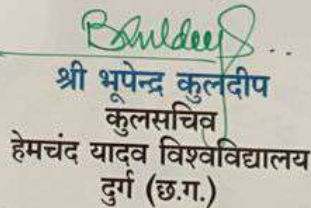 Bhuldeep
श्री भूपेन्द्र कुलदीप
कुलसचिव
हेमचंद यादव विश्वविद्यालय
दुर्ग (छ.ग.)